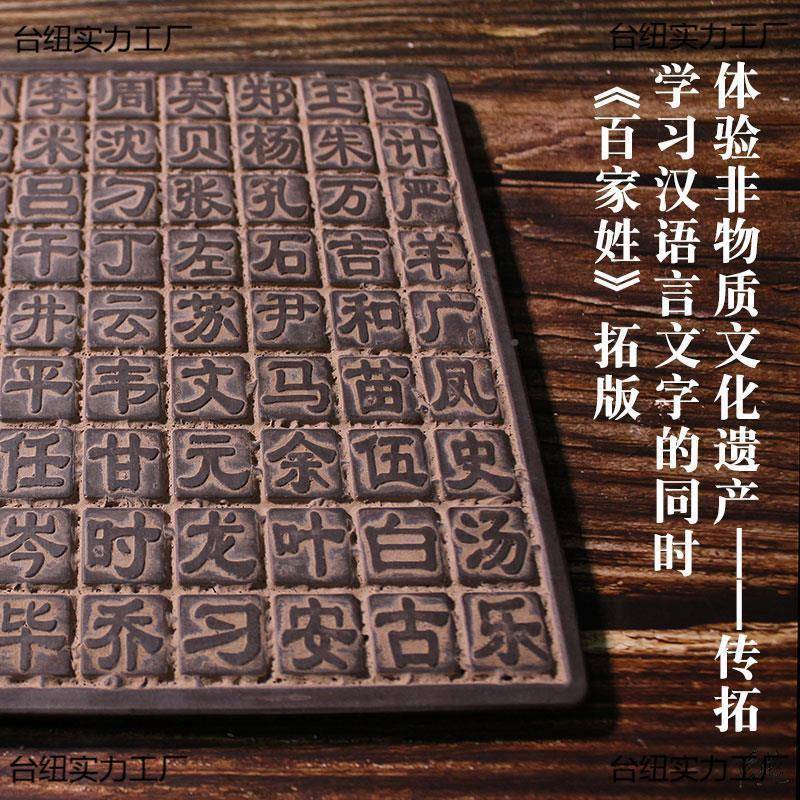 台纽实力工厂
台纽实力工厂
体验非物质文化遗产——传拓
学习汉语言文字的同时
《百家姓》拓版
李周吴郑王冯
米沈贝杨朱计
吕刁张孔万严
干丁左石吉羊
井云苏尹和广
平韦文马苗凤
任甘元余伍史
岑时龙叶白汤
毕乔习安古乐
台纽实力工厂
台纽实力工厂